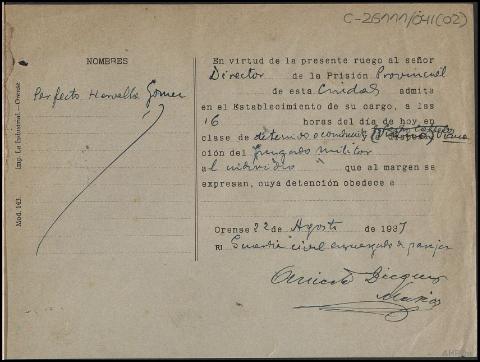 C-26111/041(02)
NOMBRES
Perfecto Gomez
En virtud de la presente ruego al señor
Director de la Prisión Provincial
de esta Ciudad admita
en el Establecimiento de su cargo, a las
16 horas del día de hoy en
clase de detenido a disposi
ción del Juzgado militar
al individuo que al margen se
expresan, cuya detención obedece a
Orense 22 de Agosto de 1937
El Guardia civil encargado de
Mod. 143. Imp. La Industrial.-Orense